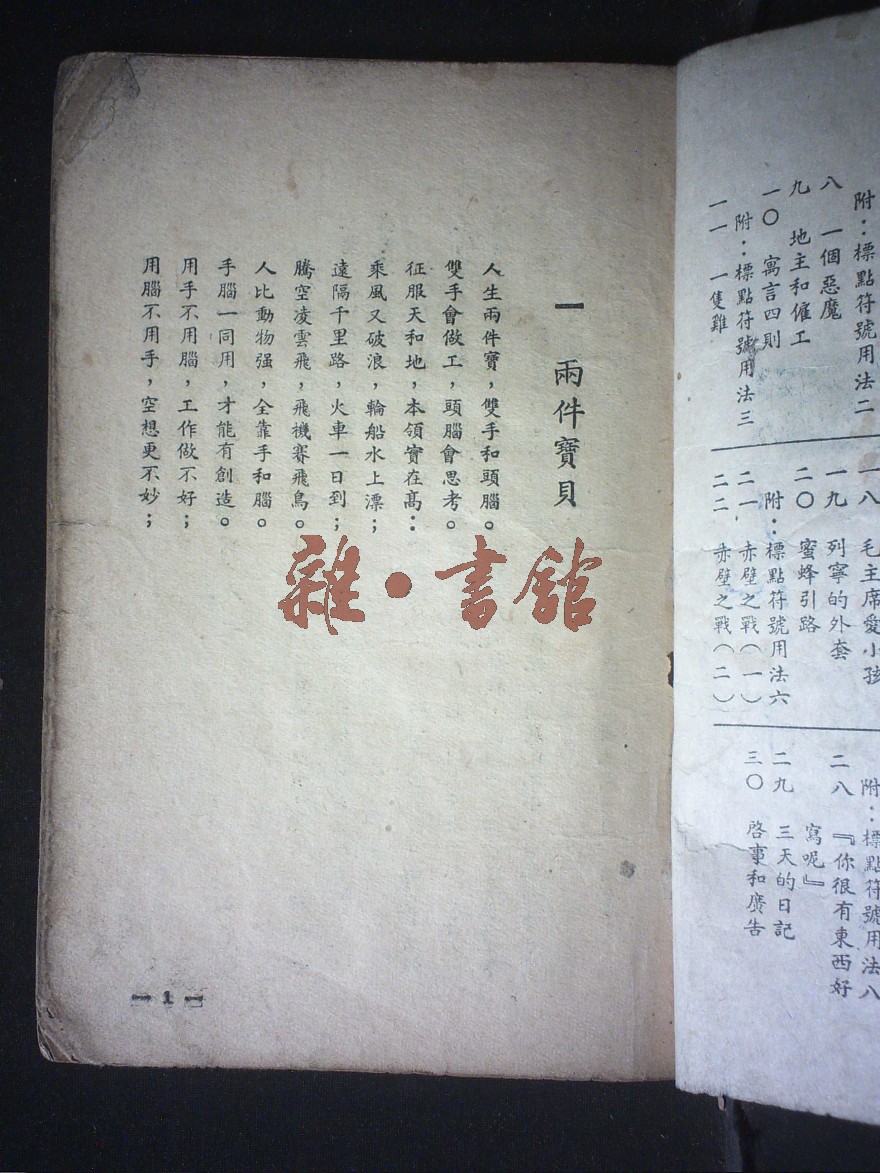 附：標點符號用法二
八　一個惡魔
九　地主和僱工
一〇　寓言四則
附：標點符號用法三
一一　一隻雞
一八　毛主席愛小孩
一九　列寧的外套
二〇　蜜蜂引路
附：標點符號用法六
二一　赤壁之戰（一）
二二　赤壁之戰（二）
附：標點符號用法八
二八　『你很有東西好
寫呢』
二九　三天的日記
三〇　啓事和廣告
一　兩件寶貝
人生兩件寶，雙手和頭腦。
雙手會做工，頭腦會思考。
征服天和地，本領實在高：
乘風又破浪，輪船水上漂；
遠隔千里路，火車一日到；
騰空凌雲飛，飛機賽飛鳥。
人比動物强，全靠手和腦。
手腦一同用，才能有創造。
用手不用腦，工作做不好；
用腦不用手，空想更不妙；
雜·書館
— 1 —